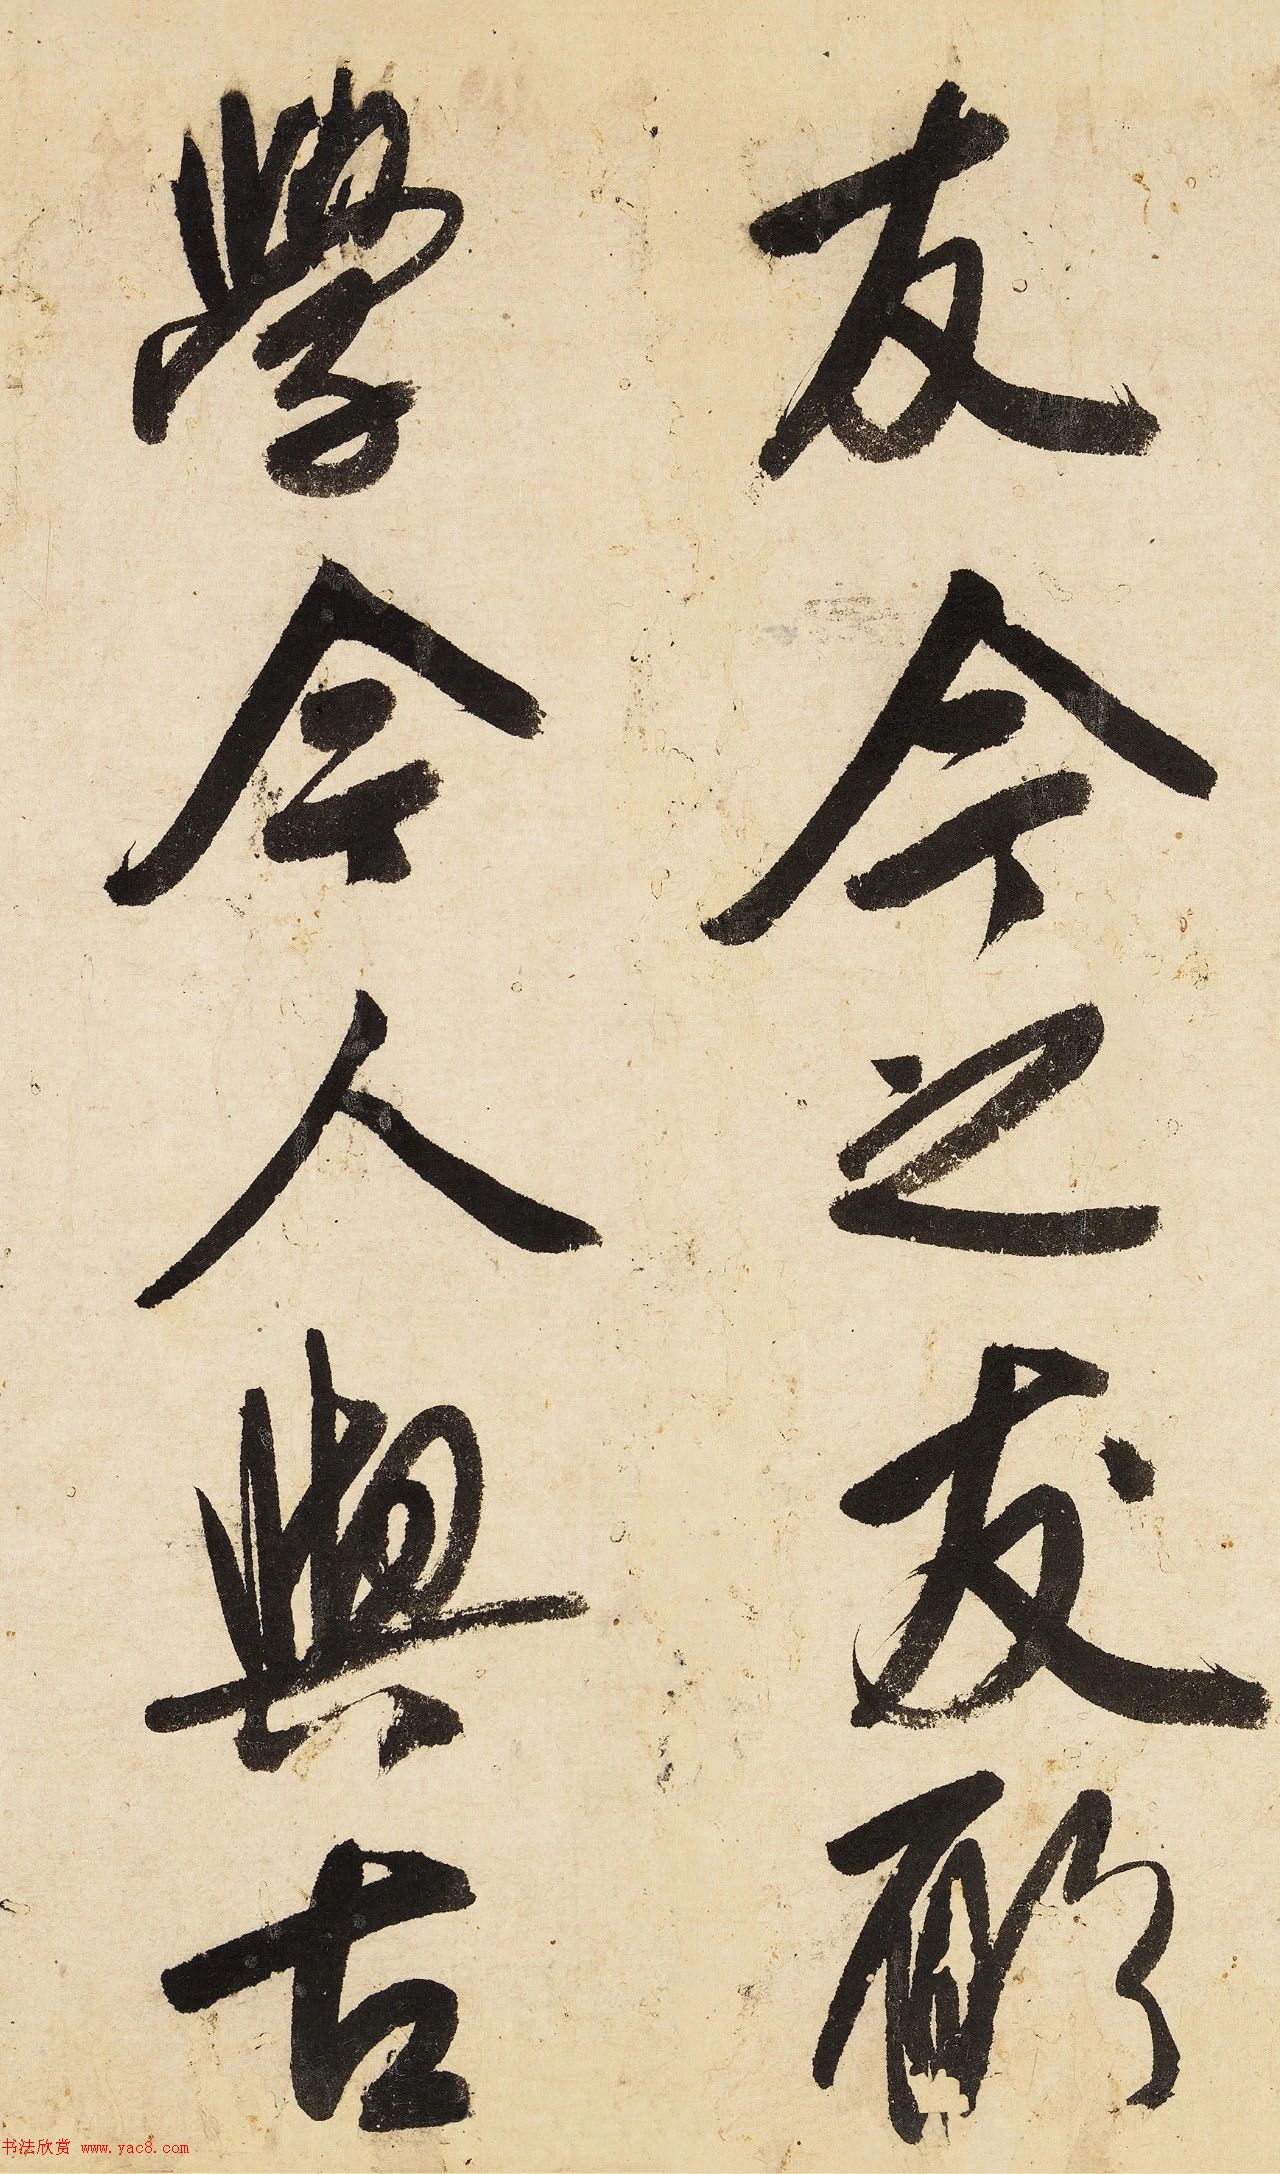 友今之友顾
學今人與古
书法欣赏 www.yac8.com